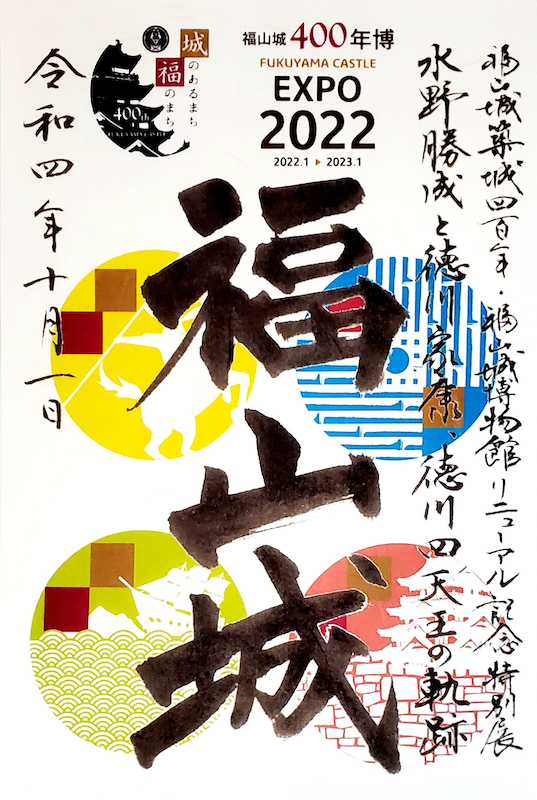 福山城築城四百年・福山城博物館リニューアル記念特別展
水野勝成と徳川家康、徳川四天王の軌跡
福山城400年博
FUKUYAMA CASTLE
EXPO
2022
2022.1 ▶ 2023.1
福山城
城のあるまち
福のまち
400th
FUKUYAMA CASTLE
令和四年十月一日